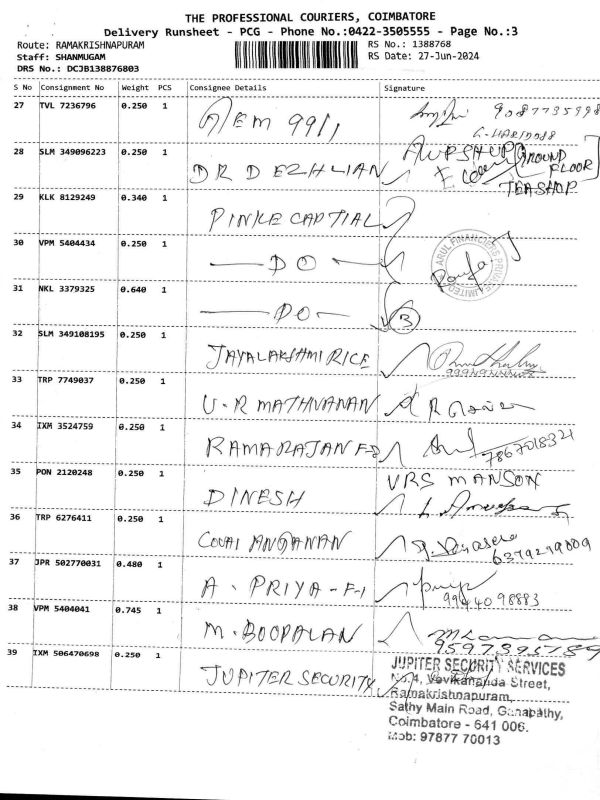 THE PROFESSIONAL COURIERS, COIMBATORE
Delivery Runsheet - PCG - Phone No.:0422-3505555 - Page No.:3
Route: RAMAKRISHNAPURAM RS No.: 1388768
Staff: SHANMUGAM RS Date: 27-Jun-2024
DRS No.: DCJB138876803
S No Consignment No Weight PCS Consignee Details Signature
27 TVL 7236796 0.250 1
9911
28 SLM 349096223 0.250 1
DR D EZHLIAN GROUND FLOOR
TEASHOP
29 KLK 8129249 0.340 1
PINKE CAPTIAL
30 VPM 5404434 0.250 1
DO ARUL FINANCIERS PRIVATE LIMITED
31 NKL 3379325 0.640 1
DO 3
32 SLM 349108195 0.250 1
JAYALAKSHMI RICE
33 TRP 7749037 0.250 1
U.R MATHIVANAN
34 IXM 3524759 0.250 1
RAMARAJAN F-8 7867018321
35 PON 2120248 0.250 1 VRS MANSON
DINESH
36 TRP 6276411 0.250 1
COVAI ANGANAN 6379219009
37 JPR 502770031 0.480 1
A. PRIYA - F-1 9944098883
38 VPM 5404041 0.745 1
M. BOOPALAN
39 IXM 506470698 0.250 1 JUPITER SECURITY SERVICES
JUPITER SECURITY No.4, Vevikananda Street,
Ramakrishnapuram,
Sathy Main Road, Ganapathy,
Coimbatore - 641 006.
Mob: 97877 70013